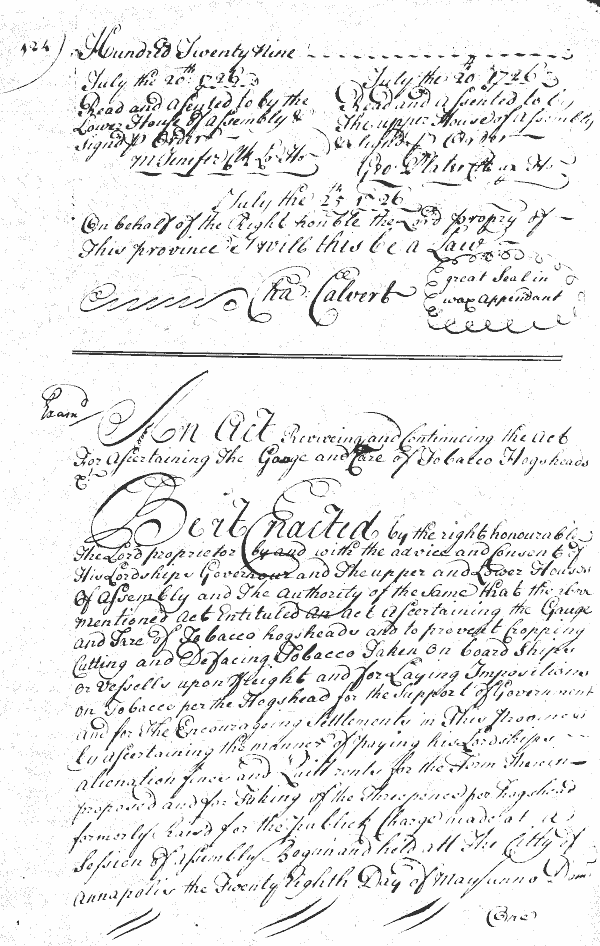 424)
Hundred Twenty Nine
July the 20th 1726
Read and assented to by the
Lower House of Assembly &
Signd p Order
M Jenifer Clk Lo Ho
July the 20 1726
Read and assented to by
the upper House of Assembly
& Signd p Order
Geo: Plater Cl up Ho
July the 25th 1726
On behalf of the Right honble the Lord propry of
This province I will this be a Law
Cha Calvert
great Seal in
wax Appendant
Examd
An Act Reviveing and Continuing the Act
For Ascertaining The Gauge and Tare of Tobacco Hogsheads
&c
Be it Enacted by the right honourable
the Lord proprietor by and with the advice and Consent of
His Lordships Governour and The upper and Lower Houses
of Assembly and The Authority of the Same that the
mentioned Act Entituled an Act Ascertaining the Gauge
and Tare of Tobacco hogsheads and to prevent Cropping
Cutting and Defacing Tobacco Taken on board Ships
or Vessells upon freight and for Laying Impositions
on Tobacco per the Hogshead for the Support of Government
and for The Encourageing Settlements in This Province
by ascertaining the manner of paying his Lordships
alienation fines and Quitt rents for the Term therein
proposed and for Taking of the Threepence per hogshead
formerly raisd for the publick Charge made at a
Session of assembly Begun and held att The Citty of
Annapolis the Twenty Eighth Day of May Anno Dom
One